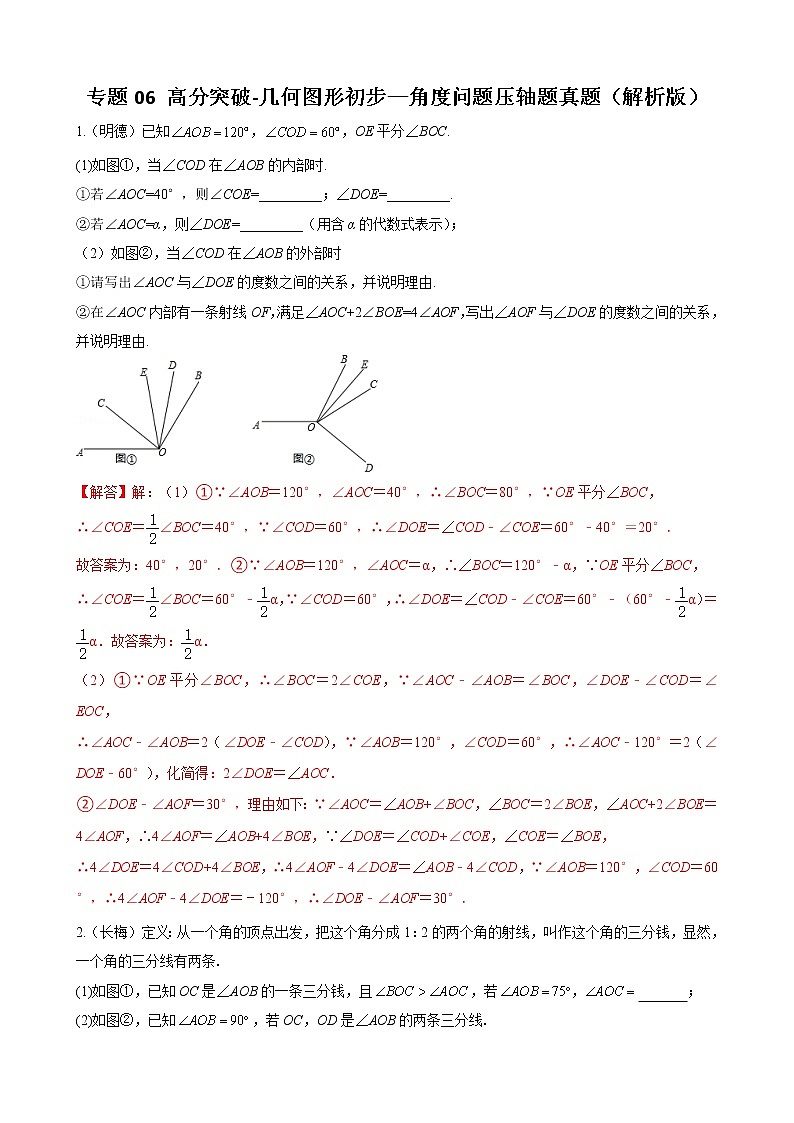 专题 06 高分突破-几何图形初步—角度问题压轴题真题（解析版）
1.（明德）已知∠AOB=120°，∠COD = 60°，OE平分∠BOC.
(1)如图①，当∠COD在∠AOB的内部时.
①若∠AOC=40°，则∠COE=_________；∠DOE=_________.
②若∠AOC=α，则∠DOE=_________（用含α的代数式表示）；
（2）如图②，当∠COD在∠AOB的外部时
①请写出∠AOC与∠DOE的度数之间的关系，并说明理由.
②在∠AOC内部有一条射线OF,满足∠AOC+2∠BOE=4∠AOF,写出∠AOF与∠DOE的度数之间的关系，
并说明理由.
E D B C A O 图①
B E C A O D 图②
【解答】解：（1）①∵∠AOB＝120°，∠AOC＝40°，∴∠BOC＝80°，∵OE平分∠BOC，
∴∠COE＝1/2∠BOC＝40°，∵∠COD＝60°，∴∠DOE＝∠COD﹣∠COE＝60°﹣40°＝20°．
故答案为：40°，20°．②∵∠AOB＝120°，∠AOC＝α，∴∠BOC＝120°﹣α，∵OE平分∠BOC，
∴∠COE＝1/2∠BOC＝60°﹣1/2α,∵∠COD＝60°,∴∠DOE＝∠COD﹣∠COE＝60°﹣（60°﹣1/2α）＝
1/2α．故答案为：1/2α．
（2）①∵OE平分∠BOC，∴∠BOC＝2∠COE，∵∠AOC﹣∠AOB＝∠BOC，∠DOE﹣∠COD＝∠
EOC，
∴∠AOC﹣∠AOB＝2（∠DOE﹣∠COD），∵∠AOB＝120°，∠COD＝60°，∴∠AOC﹣120°＝2（∠
DOE﹣60°），化简得：2∠DOE＝∠AOC．
②∠DOE﹣∠AOF＝30°，理由如下：∵∠AOC＝∠AOB+∠BOC，∠BOC＝2∠BOE，∠AOC+2∠BOE＝
4∠AOF，∴4∠AOF＝∠AOB+4∠BOE，∵∠DOE＝∠COD+∠COE，∠COE＝∠BOE，
∴4∠DOE＝4∠COD+4∠BOE，∴4∠AOF﹣4∠DOE＝∠AOB﹣4∠COD，∵∠AOB＝120°，∠COD＝60
°，∴4∠AOF﹣4∠DOE＝﹣120°，∴∠DOE﹣∠AOF＝30°．
2.（长梅）定义：从一个角的顶点出发，把这个角分成1：2的两个角的射线，叫作这个角的三分钱，显然，
一个角的三分线有两条.
(1)如图①，已知OC是∠AOB的一条三分钱，且∠BOC > ∠AOC，若∠AOB = 75°，∠AOC = _______；
(2)如图②，已知∠AOB = 90°，若OC，OD是∠AOB的两条三分线.